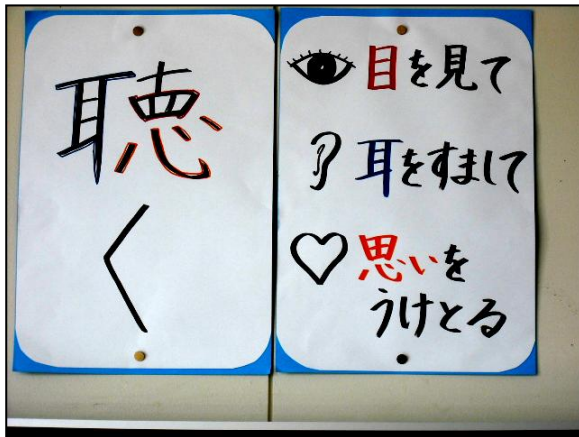 聴
く
目を見て
耳をすまして
思いを
うけとる